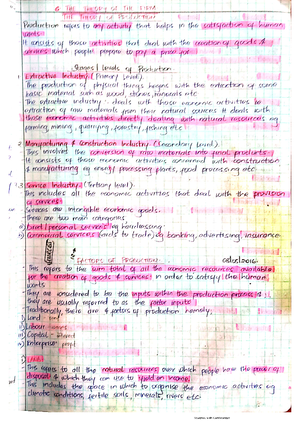 6 THE THEORY OF THE FIRM
THE THEORY OF PRODUCTION
Production refers to any activity that helps in the satisfaction of human
wants
It consists of those activities that deal with the creation of goods &
services which people prepare to pay a price for
Stages/Levels of Production
Extractive Industry (Primary Level)
The production of physical things begins with the extraction of some
base material such as wood, stones, minerals etc
The extractive industry deals with those economic activities for
extraction of raw materials from their natural covers. It deals with
those economic activities directly dealing with natural resources eg
farming, mining, quarrying, forestry, fishing etc
2 Manufacturing & Construction Industry (Secondary Level)
This involves the conversion of raw materials into final products.
It consists of those economic activities concerned with construction
& manufacturing eg energy processing plants, food processing etc
3 Service Industry (Tertiary Level)
They includes all the economic activities that deal with the provision
of services
Services are intangible economic goods.
There are two main categories
a) Direct/personal services eg hairdressing
b) Commercial services (aids to trade) eg banking, advertising, insurance
FACTORS OF PRODUCTION
This refers to the sum total of all the economic resources available
for the creation of goods & services in order to satisfy the human
wants
They are considered to be the inputs within the production process &
they are usually referred to as the factor inputs
Traditionally there are 4 factors of production namely;
i) Land
ii) Labour
iii) Capital
iv) Enterprise
i) LAND
This refers to all the natural resources over which people have the power of
disposal & which they can use to yield an income
This includes the space in which to organise the economic activities eg
climatic conditions, fertile soils, minerals, rivers etc